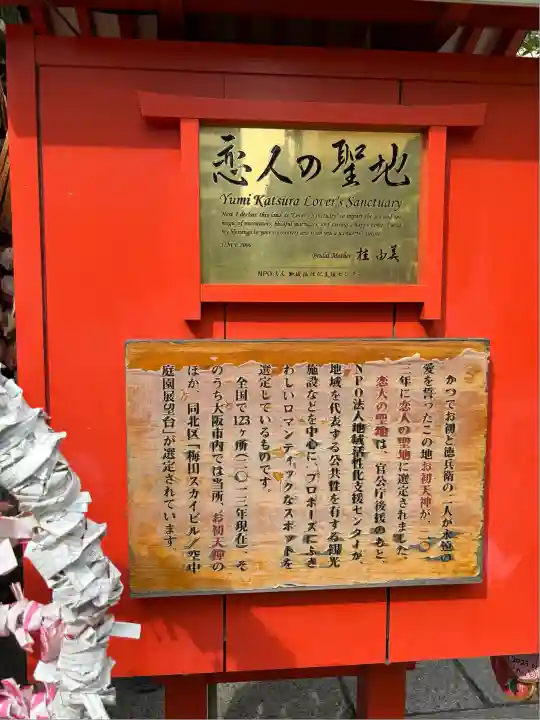 恋人の聖地
Yumi Katsura Lover's Sanctuary
Now I declare this land as "Lover's Sanctuary" to inspire the joy and the
magic of encounters, blissful marriages, and caring, happy homes. I send
my blessings to you
SINCE 2006
Bridal Mother 桂 由美
NPO法人 地域活性化支援センター
かつてお初と徳兵衛の二人が永遠の
愛を誓ったこの地お初天神が、二〇一
三年に恋人の聖地に選定されました。
恋人の聖地は、官公庁後援のもと、
NPO法人地域活性化支援センターが、
地域を代表する公共性を有する観光
施設などを中心に、プロポーズにふさ
わしいロマンティックなスポットを
選定しているものです。
全国で123ヶ所(二〇一三年現在)、そ
のうち大阪市内では当所「お初天神」の
ほか、同北区「梅田スカイビル/空中
庭園展望台」が選定されています。